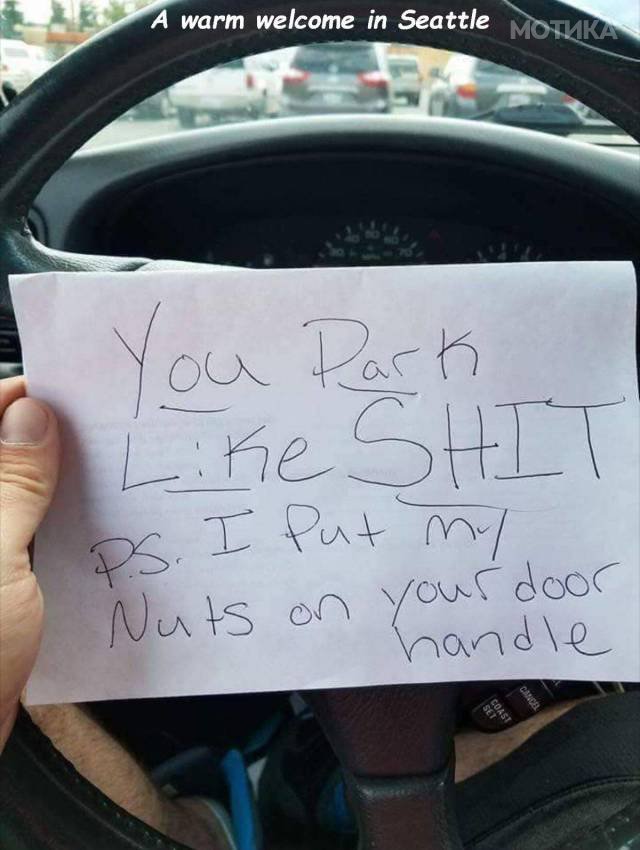 A warm welcome in Seattle
МОТИКА
You Park
Like SHIT
P.S. I Put my
Nuts on your door
handle
CANCEL
COAST
SET